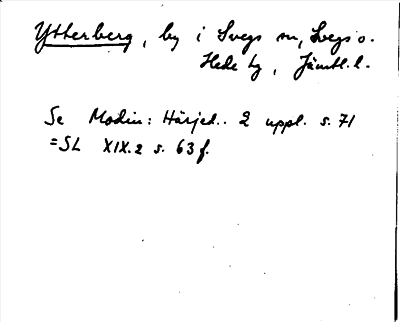 Ytterberg, by i Svegs sn, Svegs o.
Hede tg, Jämtl. l.
Se Modin: Härjed.. 2 uppl. s. 71
=SL XIX.2 s. 63 f.